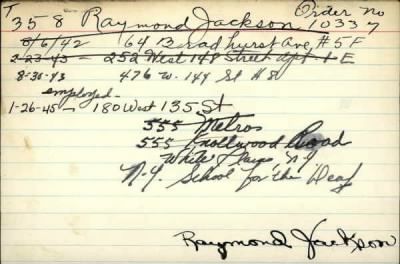 T
358 Raymond Jackson Order No
10337
8/6/42 64 Bradhurst Ave #5F
2-23-43 - 252 West 148 Street apt 1-E
8-30-43 476 W. 144 St #8
employed -
1-26-45 - 180 West 135 St
555 Metros
555 Knollwood Road
White Plains N.Y.
N-Y. School for the Deaf
Raymond Jackson